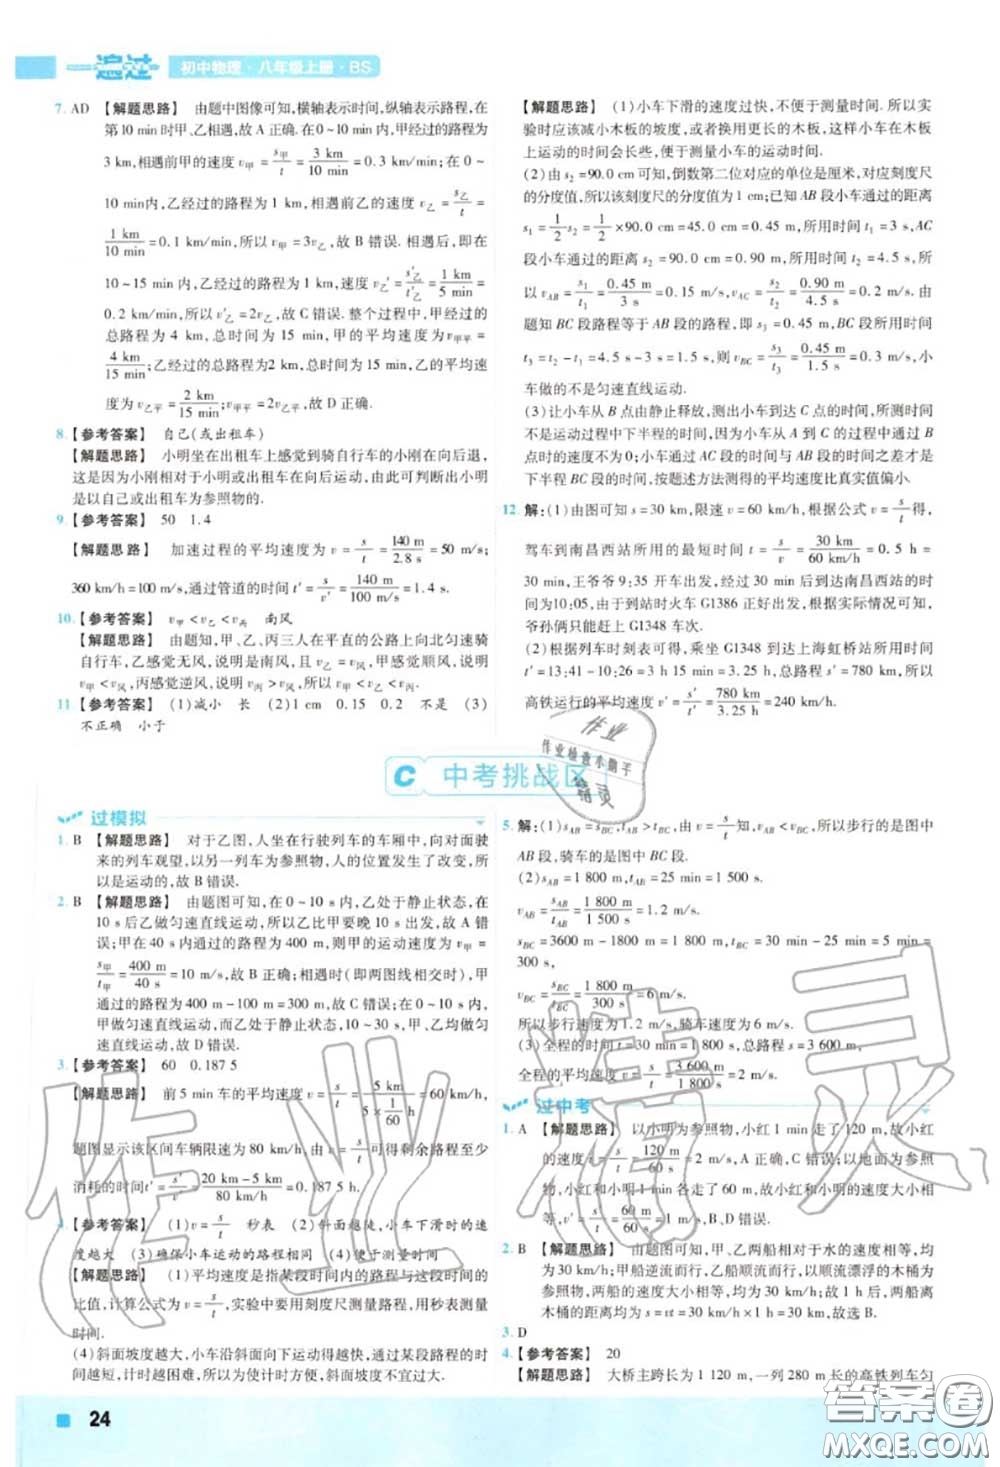 一遍过 初中物理·八年级上册·BS
7. AD 【解题思路】 由题中图像可知,横轴表示时间,纵轴表示路程,在
第 10 min 时甲、乙相遇,故 A 正确. 在 0~10 min 内,甲经过的路程为
3 km,相遇前甲的速度 v甲 = s甲/t = 3 km/10 min = 0.3 km/min;在 0~
10 min内,乙经过的路程为 1 km,相遇前乙的速度 v乙 = s乙/t =
1 km/10 min = 0.1 km/min,所以 v甲 = 3v乙,故 B 错误. 相遇后,即在
10~15 min 内,乙经过的路程为 1 km,乙的速度 v′乙 = s′乙/t′乙 = 1 km/5 min =
0.2 km/min,所以 v′乙 = 2v乙,故 C 错误. 整个过程中,甲经过的
总路程为 4 km,总时间为 15 min,甲的平均速度为 v甲平 =
4 km/15 min,乙经过的总路程为 2 km,总时间为 15 min,乙的平均速
度为 v乙平 = 2 km/15 min,v甲平 = 2v乙平,故 D 正确.
8. 【参考答案】 自己(或出租车)
【解题思路】 小明坐在出租车上感觉到骑自行车的小刚在向后退,
这是因为小刚相对于小明或出租车在向后运动,由此可判断出小明
是以自己或出租车为参照物的.
9. 【参考答案】 50 1.4
【解题思路】 加速过程的平均速度为 v = s/t = 140 m/2.8 s = 50 m/s;
360 km/h = 100 m/s,通过管道的时间 t′ = s/v′ = 140 m/100 m/s = 1.4 s.
10. 【参考答案】 v甲 < v乙 < v丙 南风
【解题思路】 由题知,甲、乙、丙三人在平直的公路上向北匀速骑
自行车,乙感觉无风,说明是南风,且 v乙 = v风,甲感觉顺风,说明
v甲 < v风,丙感觉逆风,说明 v丙 > v风,所以 v甲 < v乙 < v丙.
11 【参考答案】 (1)减小 长 (2)1 cm 0.15 0.2 不是 (3)
不正确 小于
【解题思路】 (1)小车下滑的速度过快,不便于测量时间. 所以实
验时应该减小木板的坡度,或者换用更长的木板,这样小车在木板
上运动的时间会长些,便于测量小车的运动时间.
(2)由 s2 = 90.0 cm 可知,倒数第二位对应的单位是厘米,对应刻度尺
的分度值,所以该刻度尺的分度值为 1 cm;已知 AB 段小车通过的距离
s1 = 1/2 s2 = 1/2 × 90.0 cm = 45.0 cm = 0.45 m,所用时间 t1 = 3 s,AC
段小车通过的距离 s2 = 90.0 cm = 0.90 m,所用时间 t2 = 4.5 s,所
以 vAB = s1/t1 = 0.45 m/3 s = 0.15 m/s,vAC = s2/t2 = 0.90 m/4.5 s = 0.2 m/s. 由
题知 BC 段路程等于 AB 段的路程,即 s3 = 0.45 m,所用时间
t3 = t2 − t1 = 4.5 s − 3 s = 1.5 s,则 vBC = s3/t3 = 0.45 m/1.5 s = 0.3 m/s,小
车做的不是匀速直线运动.
(3)让小车从 B 点由静止释放,测出小车到达 C 点的时间,所测时间
不是运动过程中下半程的时间,因为小车从 A 到 C 的过程中通过 B
点时的速度不为 0;小车通过 AC 的时间与 AB 的时间之差才是
下半程小车运动的时间. 按题述方法测得的平均速度比真实值偏小.
12. 解:(1)由图可知 s = 30 km,限速 v = 60 km/h,根据公式 v = s/t 得,
驾车到南昌西站所用的最短时间 t = s/v = 30 km/60 km/h = 0.5 h =
30 min,王爷爷 9:35 开车出发,经过 30 min 到达南昌西站的时间
为10:05,此时火车 G1386 正好出发,根据实际情况可知,
爷孙俩只能赶上 G1348 车次.
(2)根据列车时刻表可得,乘坐 G1348 到达上海虹桥站所用时间
t′ = 13:41 − 10:26 = 3 h 15 min = 3.25 h,总路程 s′ = 780 km,
高铁运行的平均速度 v′ = s′/t′ = 780 km/3.25 h = 240 km/h.
C 中考挑战区
过模拟
1. B 【解题思路】 对于乙图,人坐在行驶列车的车厢中,向对面驶
来的列车观望,以另一列车为参照物,人的位置发生了改变,所
以是运动的,故 B 错误.
2. B 【解题思路】 由题图可知,在 0~10 s 内乙处于静止状态,在
10 s 后乙做匀速直线运动,所以乙比甲要晚 10 s 出发,故 A 错
误;甲在 40 s 内通过的路程为 400 m,则甲的运动速度为 v甲 =
s甲/t甲 = 400 m/40 s = 10 m/s,故 B 正确;相遇时(即两图线相交时),甲
通过的路程为 400 m − 100 m = 300 m,故 C 错误;在 0~10 s 内,
甲做匀速直线运动,而乙处于静止状态,10~30 s,甲、乙都做匀
速直线运动,故 D 错误.
3. 【参考答案】 60 0.187 5
【解题思路】 前 5 min 车的平均速度为 v = s/t = 5 km/(5 × 1/60 h) = 60 km/h,
题图显示该区间车辆限速为 80 km/h,由 v = s/t 可得剩余路程至少
消耗的时间 t′ = s′/v′ = (20 km − 5 km)/80 km/h = 0.187 5 h.
4. 【参考答案】 (1)v = s/t 秒表 (2)斜面越陡,小车下滑时的速
度越大 (3)确保小车运动的路程相同 (4)便于测量时间
【解题思路】 (1)平均速度是指某段时间内的路程与这段时间的
比值,计算公式为 v = s/t,实验中要用刻度尺测量路程,秒表测量
时间.
(4)斜面坡度越大,小车沿斜面向下运动越快,通过某段路程的时间
越短,计时越困难,所以为了方便计时,斜面坡度不宜过大.
5. 解:(1)sAB = sBC,tAB > tBC,由 v = s/t 知,vAB < vBC,所以步行的是图中
AB 段,骑车的是图中 BC 段.
(2)sAB = 1 800 m,tAB = 25 min = 1 500 s,
vAB = sAB/tAB = 1 800 m/1 500 s = 1.2 m/s,
sBC = 3600 m − 1800 m = 1 800 m,tBC = 30 min − 25 min = 5 min =
300 s,
vBC = sBC/tBC = 1 800 m/300 s = 6 m/s.
所以步行速度为1.2 m/s,骑车速度为 6 m/s.
(3)全程的时间 t = 30 min = 1 800 s,总路程 s = 3 600 m,
全程的平均速度为 v = s/t = 3 600 m/1 800 s = 2 m/s
过中考
1. A 【解题思路】 以小明为参照物,小红 1 min 走了 120 m,故小红
的速度 v = s/t = 120 m/60 s = 2 m/s,A 正确,C 错误;以地面为参照
物,小红和小明 1 min 走的路程都是 60 m,故小红和小明速度大小相
等,v′ = s′/t = 60 m/60 s = 1 m/s,B、D 错误.
2. B 【解题思路】 由题图可知,甲、乙两船相对于水的速度相等,均
为 30 km/h;甲船逆流而行,乙船顺流而行,以顺流漂浮的木桶为
参照物,两船的速度大小相等,都为 30 km/h;故 1 h 后,两船距离
木桶的距离均为 s = vt = 30 km/h × 1 h = 30 km,故选 B.
3. D
4. 【参考答案】 20
【解题思路】 大桥主跨长为 1 120 m,一列 280 m 长的高铁列车匀
24
作业
作业检查小帮手
精灵
作业精灵
答案圈
MXQE.COM